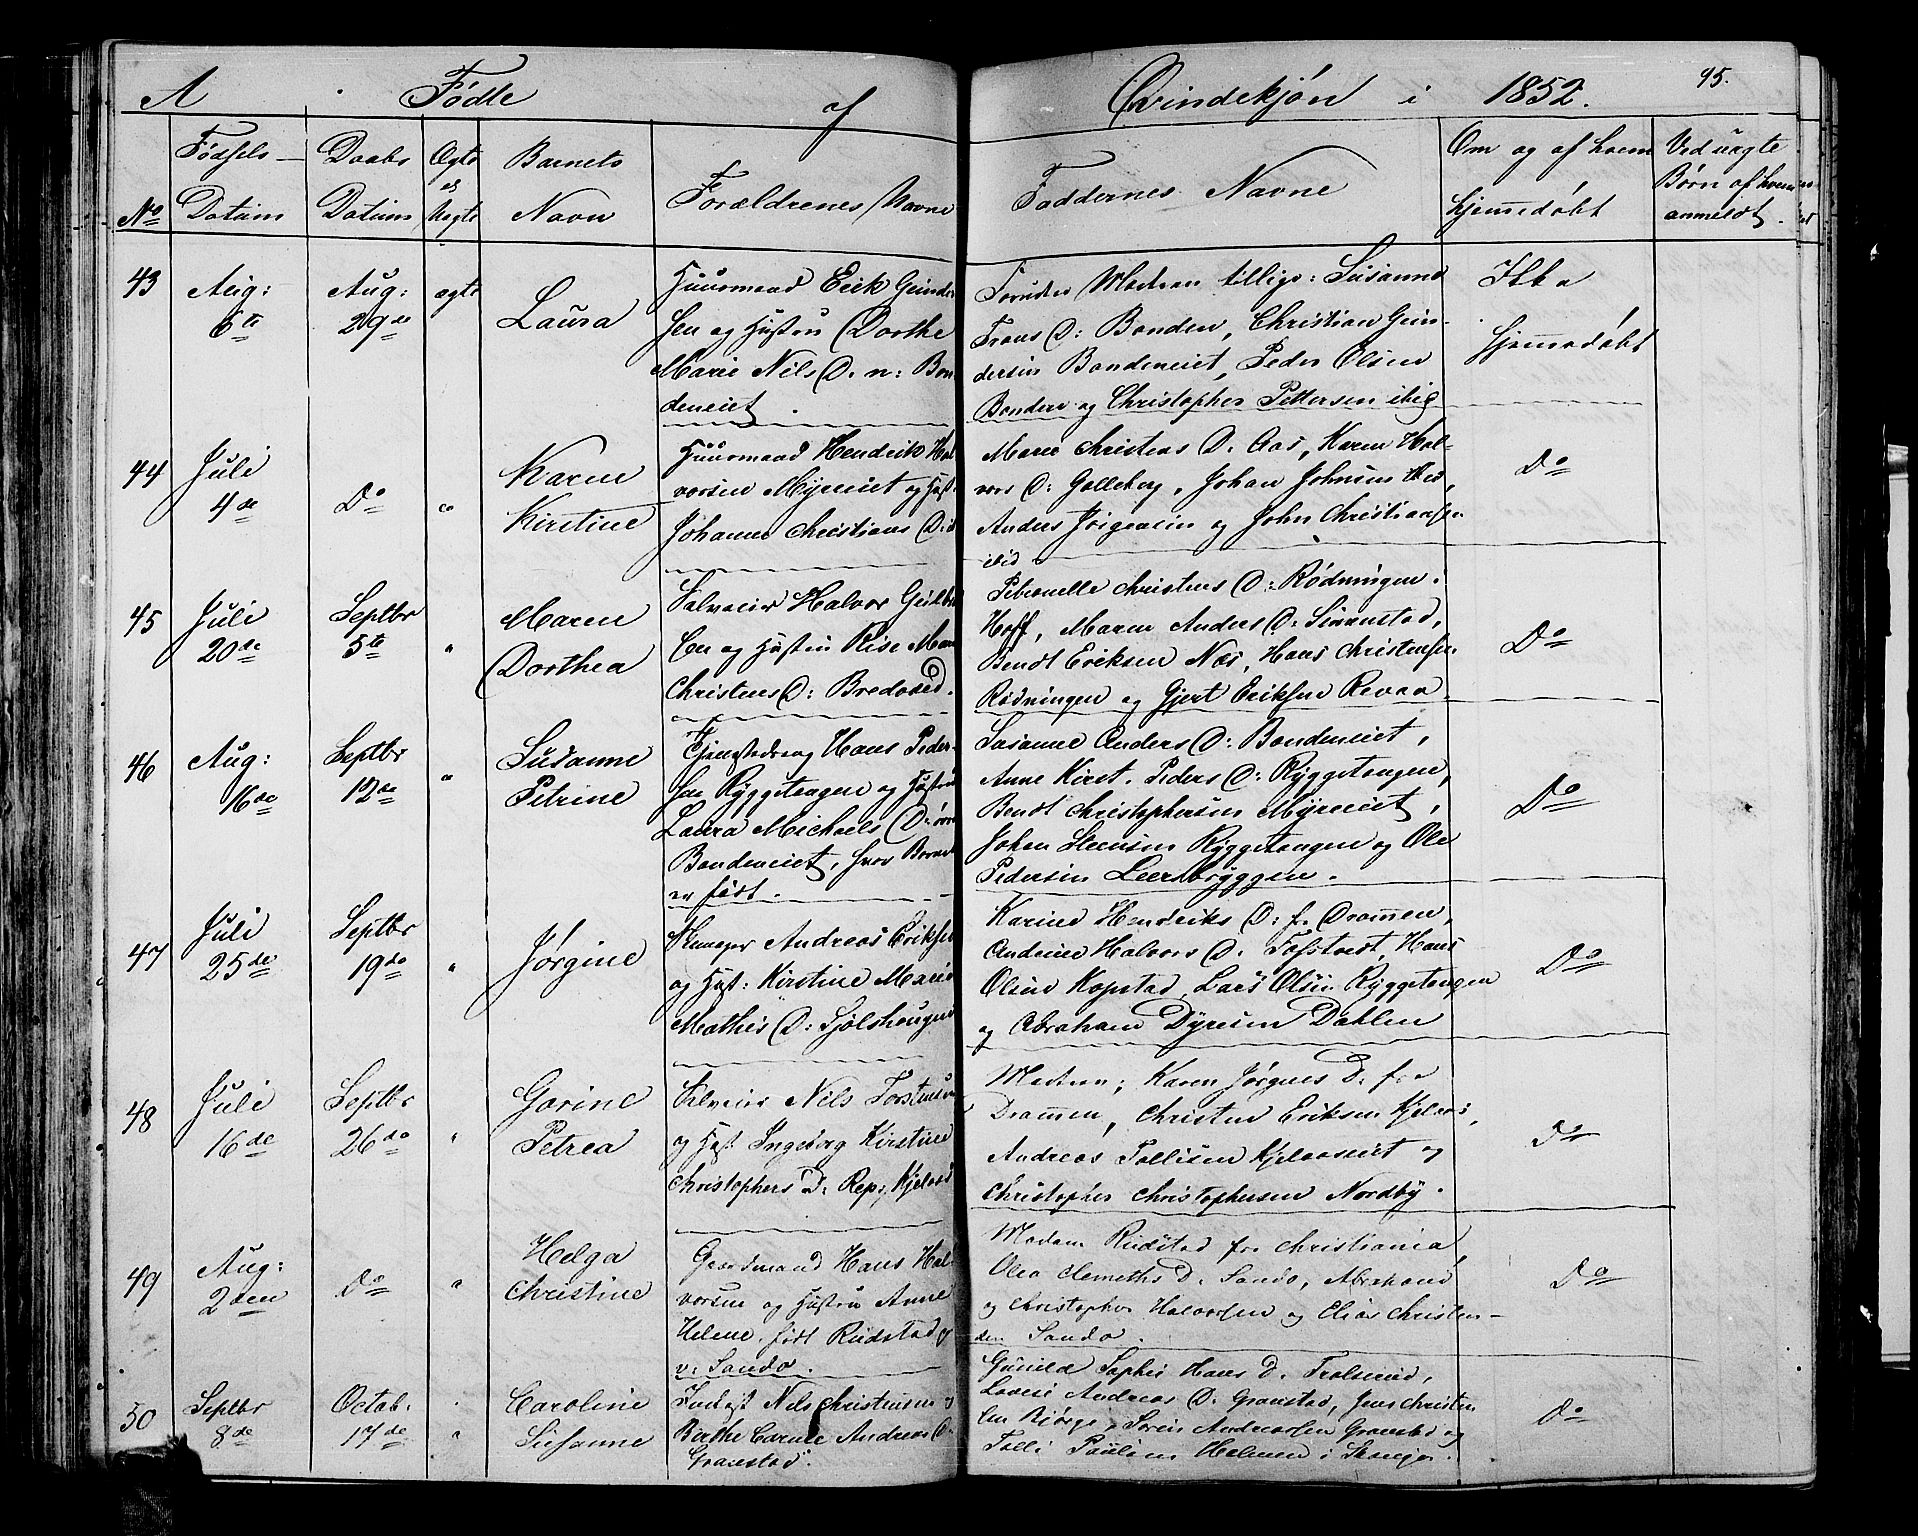 A Fødte af Qvindekjøn i 1852. 95.
No Fødsels- Datum Daabs Datum Ægte el. Uægte Barnets Navn Forældrenes Navne Faddernes Navne Om og af hvem hjemedøbt Ved uægte Børn af hvem anmeldt.
43 Aug: 6te Aug: 29de ægte Laura
Huusmand Erik Gunder-
sen og Hustru Dorthe
Marie Nils D. n: Bon-
deneiet.
Foruden Modren tillige: Susanne
Frans D: Bonden, Christian Gun-
dersen Bondeneiet, Peder Olsen
Bonden og Christopher Pettersen ibid
Ikke
hjemmedøbt
44 Juli 4de Do " Karen Kirstine
Huusmand Hendrik Hal-
vorsen Myreeiet og Hust.
Johanne Christians D: ibid
Maren Christens D. Aas, Karen Hal-
vors D: Golleberg, Johan Johnsen
Anders Jørgensen og John Christiansen
ibid
Do
45 Juli 20de Septbr 5te " Maren Dorthea
Selveier Halvor
sen og Hustru Lise
Christens D: Bredvved.
Petronelle Christens D: Rødningen.
Hoff, Maren Anders D: Simmestad,
Bendt Eriksen Næs, Hans Christensen
Rødningen og Gjert Eriksen Revaa
Do
46 Aug: 16de Septbr 12de " Susanne Petrine
Hans Peder-
sen Ryggetangen og Hustru
Laura Michaels D:
Bondeneiet, hvor Barnet
er født.
Susanne Anders D: Bondeneiet,
Anne Kirst. Peders D: Ryggetangen,
Bendt Christophersen Myreeiet,
Johan Ryggetangen og Ole
Pedersen Leersbryggen.
Do
47 Juli 25de Septbr 19de " Jørgine
Andreas Eriksen
og Hust: Kirstine Marie
Mathis D: Fjølshougen
Karine Hendriks D: f. Drammen,
Andrine Halvors D. Tofstvedt, Hans
Olsen Kopstad, Lars Olsen Ryggetangen
og Abraham Dyresen Dahlen
Do
48 Juli 16de Septbr 26de " Gorine Petrea
Selveier Nils Torstensen
og Hust Ingeborg Kirstine
Christophers D: Rep: Kjelaas
Modren; Karen Jørgens D. fra
Drammen, Christen Eriksen Kjelaas,
Andreas Tollisen Kjelaaseiet og
Christopher Christophersen Nordby.
Do
49 Aug: 2den Do " Helga Christine
Gaardmand Hans Hal-
vorsen og Hustru Anne
Helene født Rudstad
v: Sando.
Madam Rudstad fra Christiania
Olea Clemeths D. Sando, Abraham
og Christopher Halvorsen og Elias Christen-
sen Sando.
Do
50 Septbr 8de Octob. 17de " Caroline Susanne
Nils Christensen og
Birthe Carine Andreas D.
Gravestad.
Gunild Sophie Hans D. Trolsrud,
Lovise Andreas D. Gravestad, Jens Christen-
sen Bjerge, Søren Andreassen Gravestad og
Tolli Paulsen Holmen i Skouge.
Do